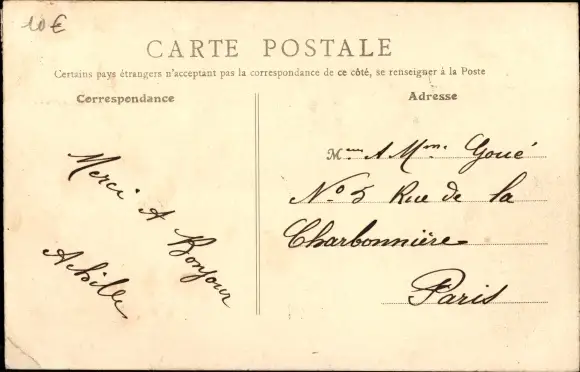 10€
CARTE POSTALE
Certains pays étrangers n'acceptant pas la correspondance de ce côté, se renseigner à la Poste
Correspondance
Merci A Bonjour
Achille
Adresse
Mme A Mme Goué
No 5 Rue de la
Charbonnière
Paris